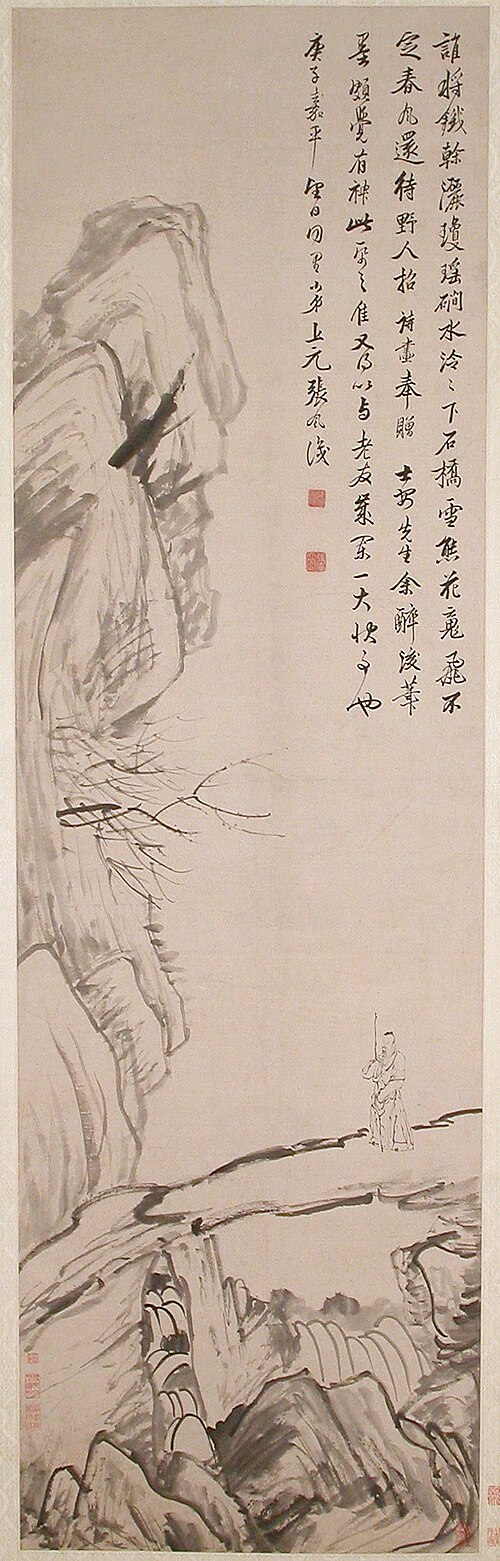 誰將鐵榦灑瓊瑤磵水泠〻下石橋雪態花魂飛不
定春風還待野人招詩畫奉贈 士先生余醉後筆
墨頗覺有神此之佳又得以与老友一大快事也
庚子嘉平望日同學小弟上元張風識